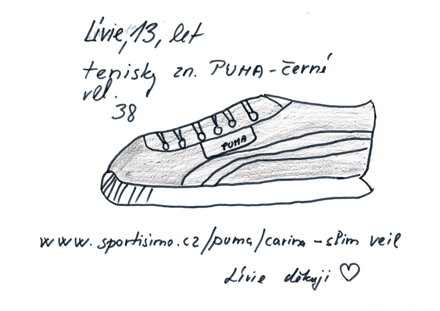 Lívie, 13, let
tenisky zn. PUMA-černé
vel.
38
PUMA
www.sportisimo.cz/puma/carina-slim veil
Lívie děkuji ♡